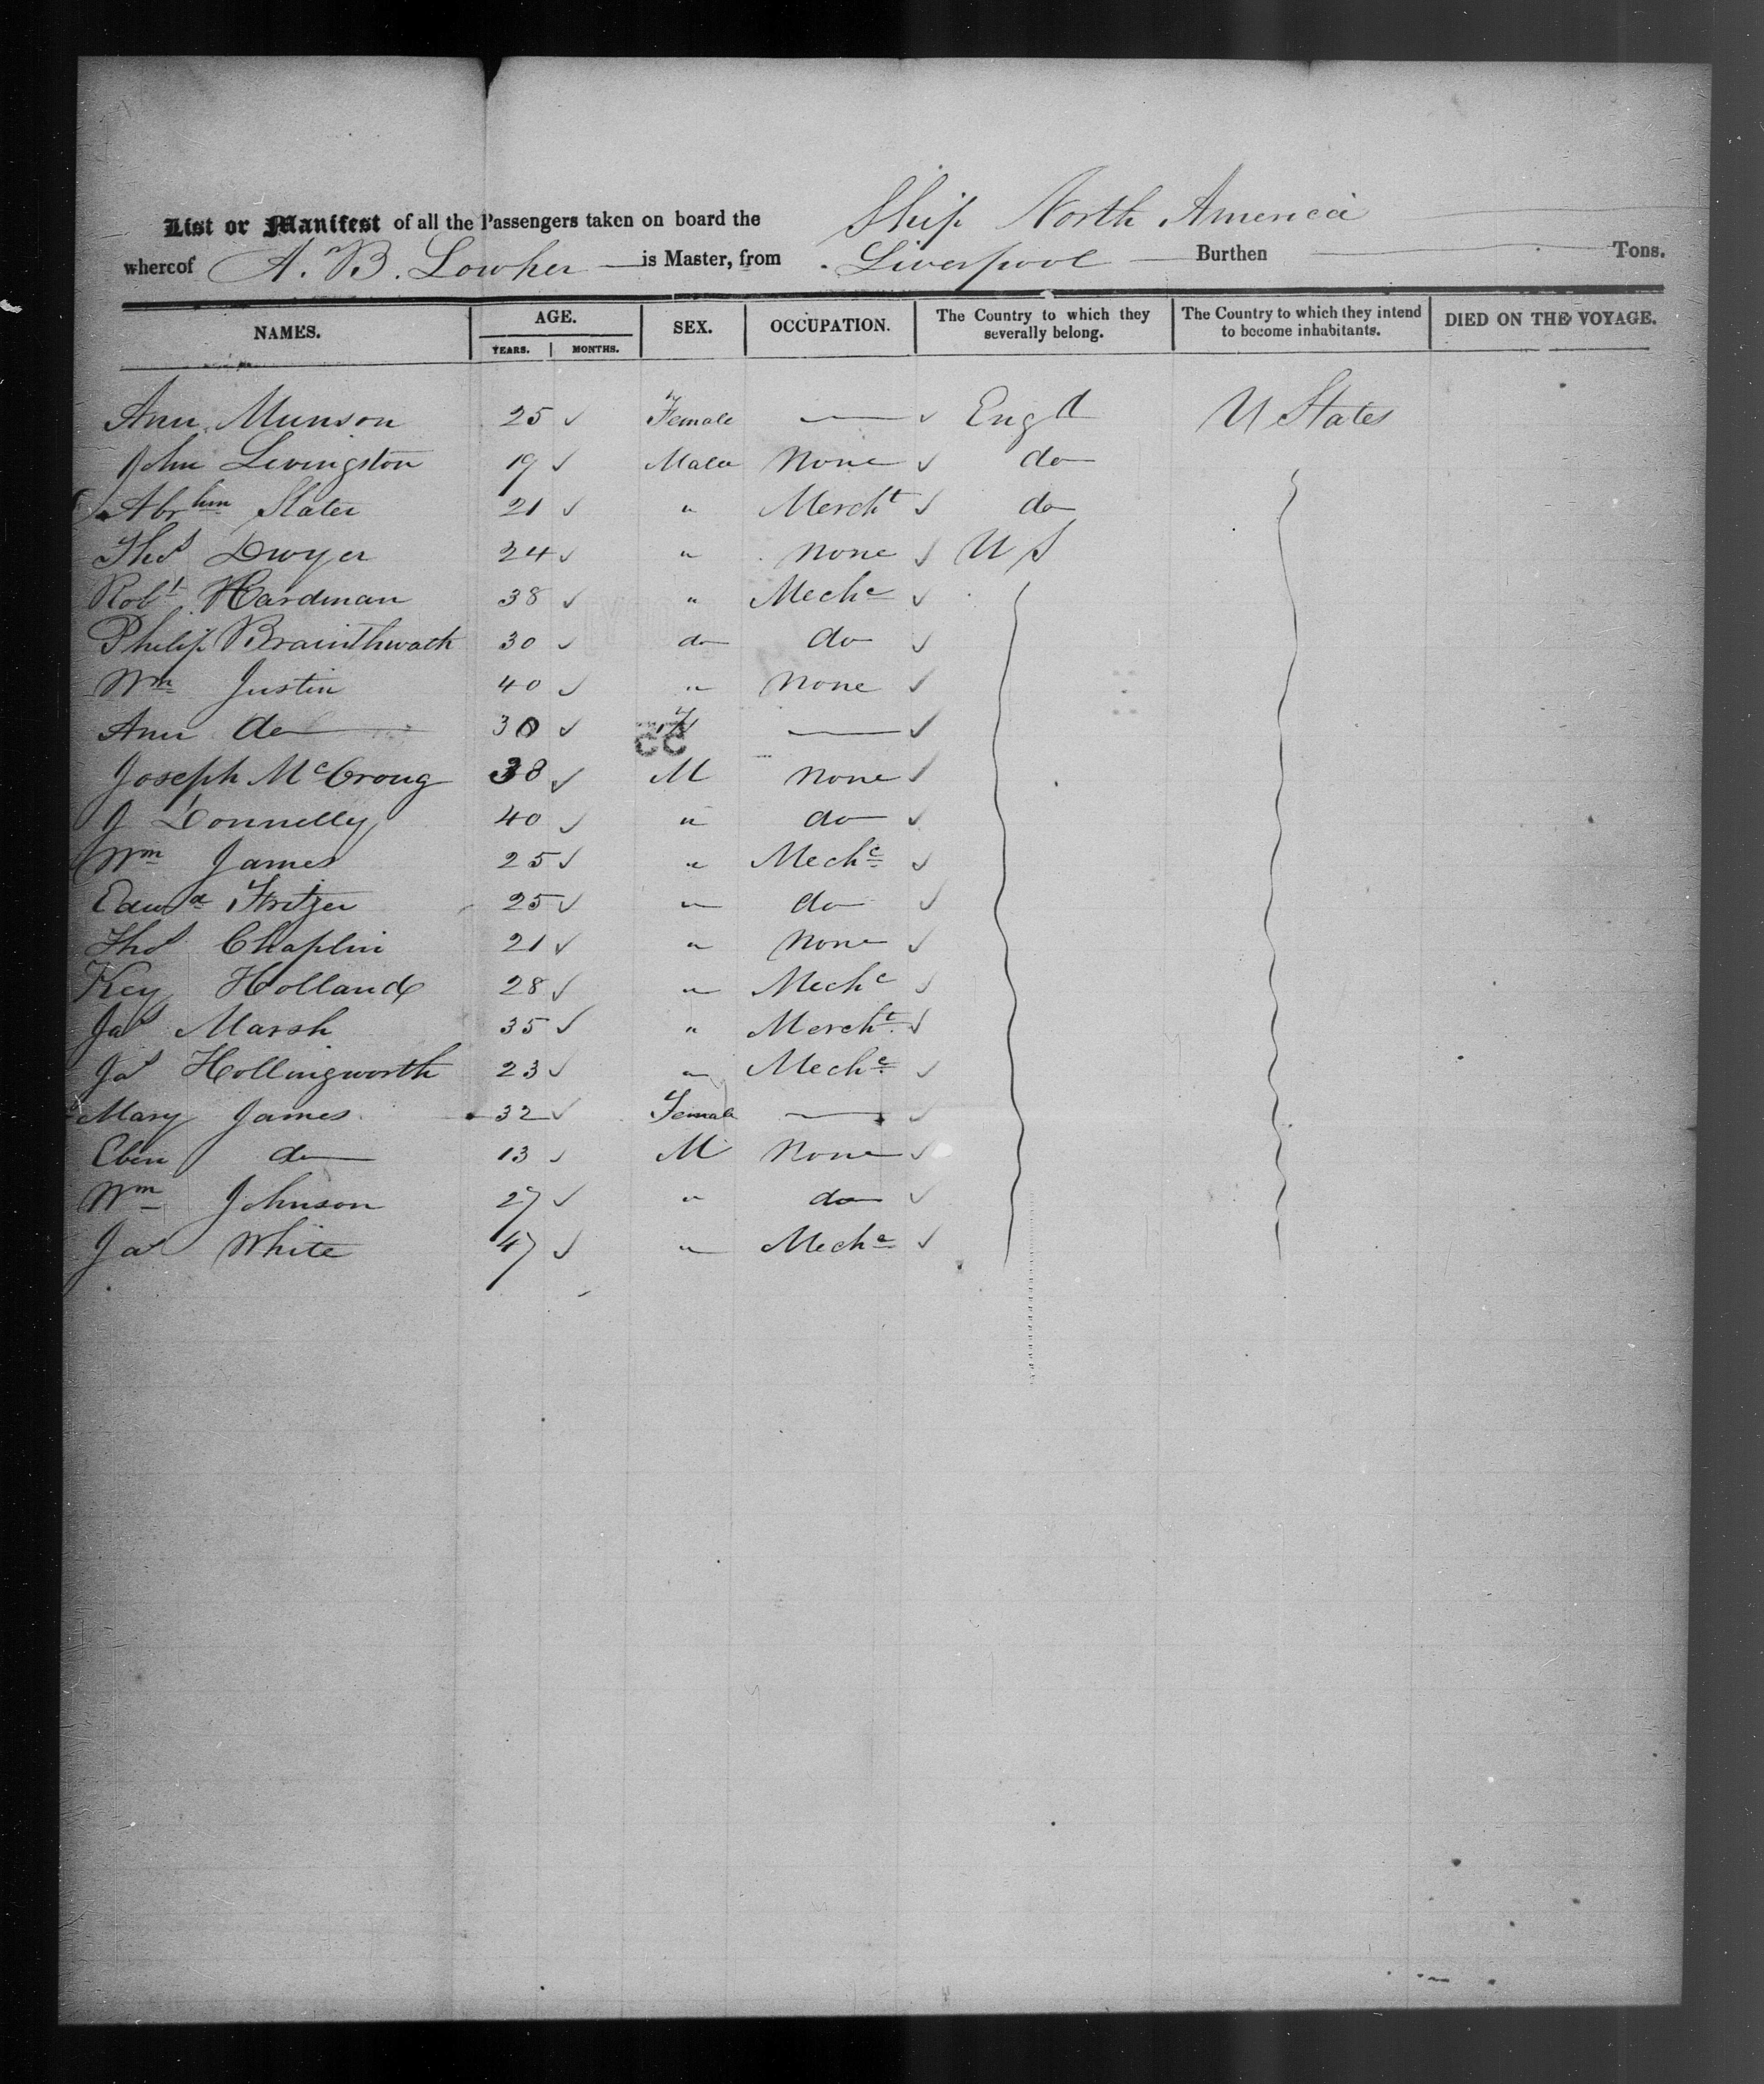 List or Manifest of all the Passengers taken on board the Ship North America
whereof A. B. Lowber is Master, from Liverpool Burthen Tons.
NAMES. AGE. YEARS. MONTHS. SEX. OCCUPATION. The Country to which they severally belong. The Country to which they intend to become inhabitants. DIED ON THE VOYAGE.
Ann Munson 25 Female — Engd U States
John Livingston 19 Male None do
Abrhm Slater 21 " Mercht do
Thos Dwyer 24 " None U S
Robt Hardman 38 " Mechc
Philip 30 do do
Wm Justin 40 " None
Ann do 30 F —
Joseph 38 M None
J Donnelly 40 " do
Wm James 25 " Mechc
Edwd 25 " do
Thos Chaplin 21 " None
Key Holland 28 " Mechc
Jas Marsh 35 " Mercht
Jas Hollingworth 23 " Mechc
Mary James 32 Female —
Eben do 13 M None
Wm Johnson 27 " do
Jas White 47 " Mechc